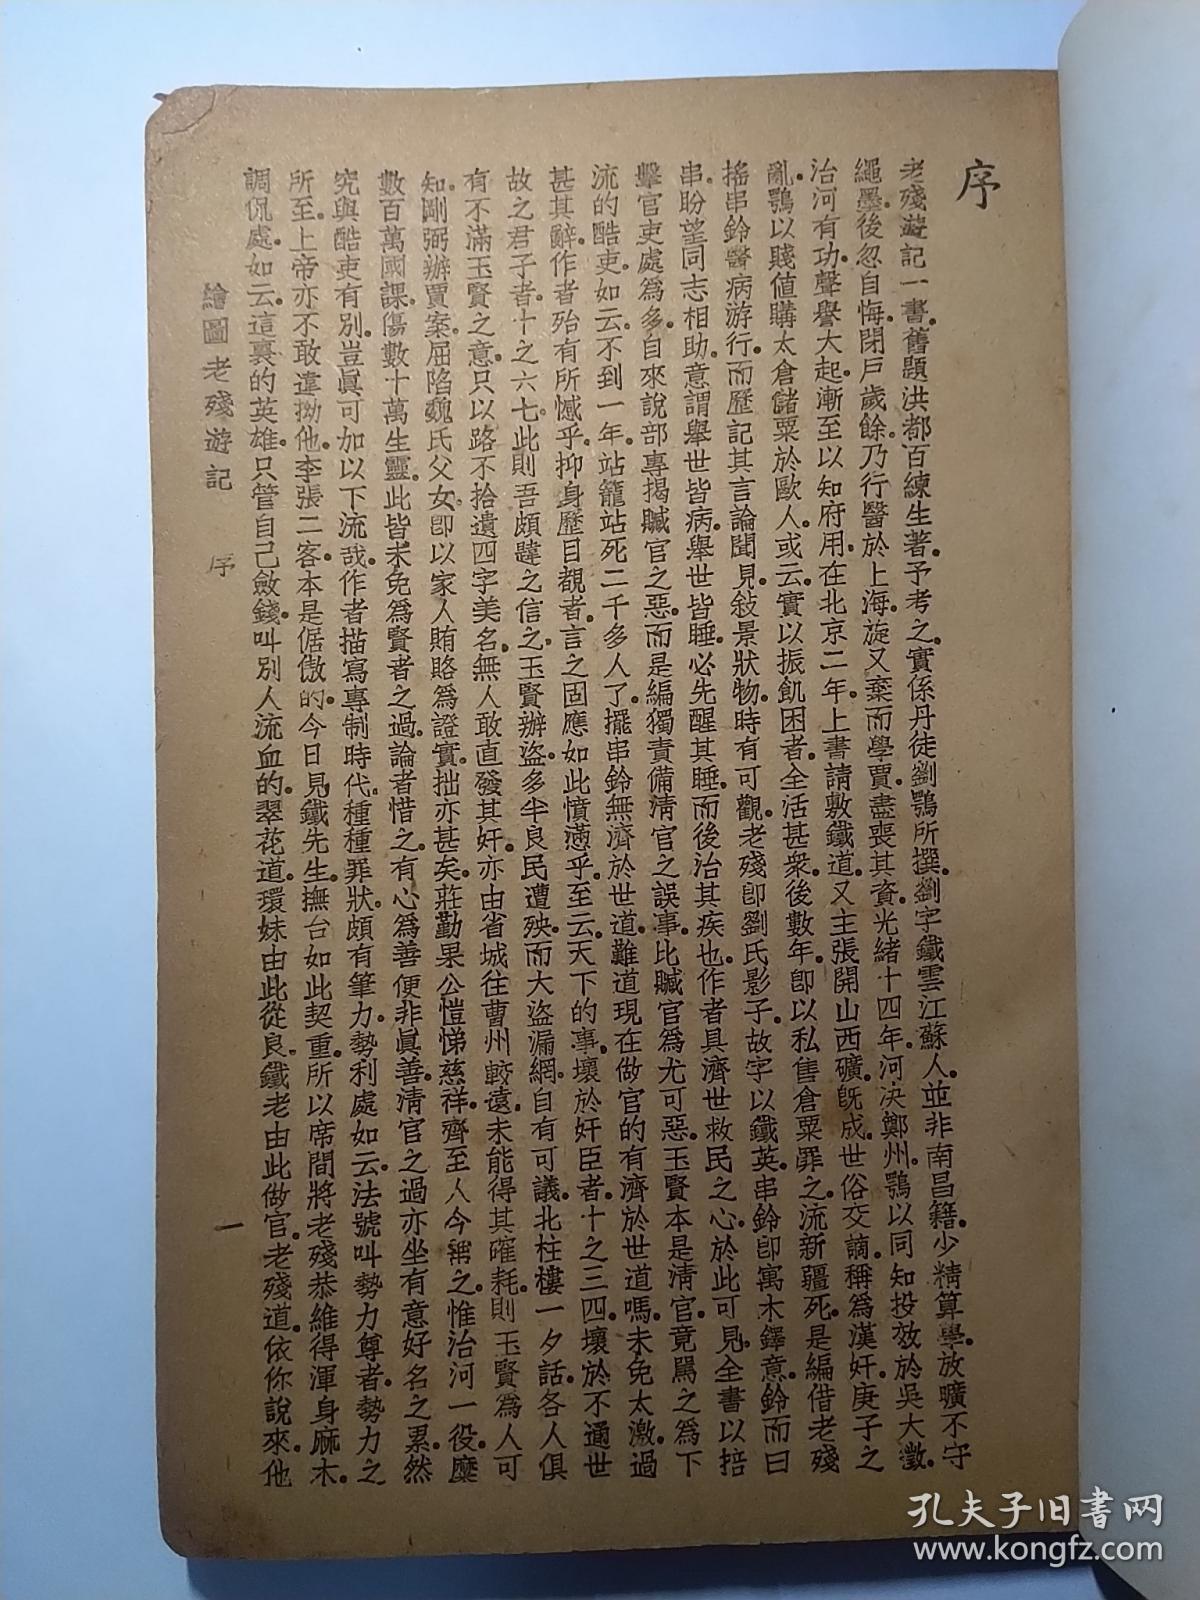 序
老殘遊記一書。舊題洪都百練生著。予考之。實係丹徒劉鶚所撰。劉字鐵雲江蘇人。並非南昌籍。少精算學。放曠不守
繩墨。後忽自悔。閉戶歲餘。乃行醫於上海。旋又棄而學賈。盡喪其資。光緒十四年。河決鄭州。鶚以同知投效於吳大澂。
治河有功。聲譽大起。漸至以知府用。在北京二年。上書請敷鐵道。又主張開山西礦。旣成。世俗交謫。稱爲漢奸。庚子之
亂。鶚以賤値購太倉儲粟於歐人。或云。實以振飢困者。全活甚衆。後數年。卽以私售倉粟罪之。流新疆死。是編借老殘
搖串鈴醫病游行。而歷記其言論聞見。敍景狀物。時有可觀。老殘卽劉氏影子。故字以鐵英。串鈴卽寓木鐸意。鈴而曰
串。盼望同志相助。意謂舉世皆病。舉世皆睡。必先醒其睡。而後治其疾也。作者具濟世救民之心。於此可見。全書以掊
擊官吏處爲多。自來說部專揭贓官之惡。而是編獨責備清官之誤事。比贓官爲尤可惡。玉賢本是清官。竟罵之爲下
流的酷吏。如云。不到一年。站籠站死二千多人了。擺串鈴無濟於世道。難道現在做官的有濟於世道嗎。未免太激。過
甚其辭。作者殆有所憾乎。抑身歷目覩者。言之固應如此憤懣乎。至云。天下的事。壞於奸臣者。十之三四。壞於不通世
故之君子者。十之六七。此則吾頗韙之信之。玉賢辦盜。多半良民遭殃。而大盜漏網。自有可議。北柱樓一夕話。各人俱
有不滿玉賢之意。只以路不拾遺四字美名。無人敢直發其奸。亦由省城往曹州較遠。未能得其確耗。則玉賢爲人可
知。剛弼辦賈案。屈陷魏氏父女。卽以家人賄賂爲證實。拙亦甚矣。莊勤果公愷悌慈祥。齊至人今稱之。惟治河一役。糜
數百萬國課。傷數十萬生靈。此皆未免爲賢者之過。論者惜之。有心爲善便非眞善。清官之過亦坐有意好名之累。然
究與酷吏有別。豈眞可加以下流哉。作者描寫專制時代。種種罪狀。頗有筆力。勢利處如云。法號叫勢力尊者。勢力之
所至。上帝亦不敢違拗他。李張二客。本是倨傲的。今日見鐵先生。撫台如此契重。所以席間將老殘恭維得渾身麻木。
調侃處。如云。這裏的英雄。只管自己斂錢。叫別人流血的。翠花道。環妹由此從良。鐵老由此做官。老殘道。依你說來。他
繪圖老殘遊記 序 一
孔夫子旧书网
www.kongfz.com